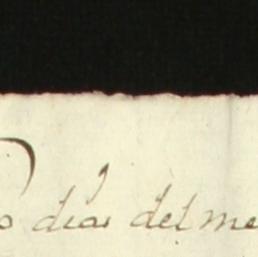 o dias del me